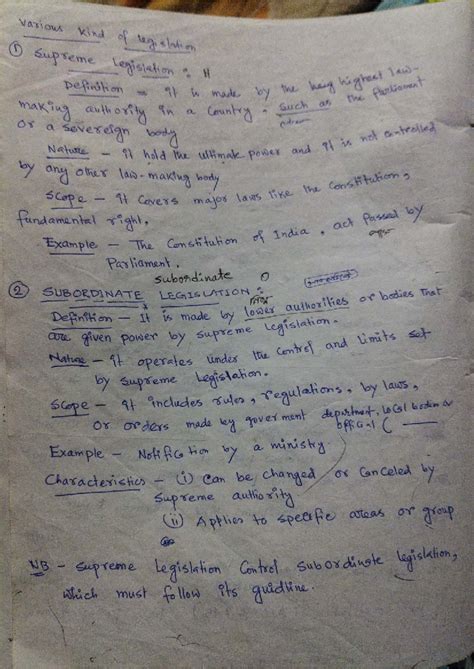 Various kind of legislation
① Supreme Legislation :
Definition - it is made by the highest law-
making authority in a Country. such as the Parliament
or a sovereign body
Nature - it hold the ultimate power and it is not controlled
by any other law-making body
Scope - it Covers major laws like the Constitution,
fundamental right.
Example - The Constitution of India, act passed by
Parliament.
subordinate
② SUBORDINATE LEGISLATION :
Definition - It is made by lower authorities or bodies that
are given power by supreme legislation.
Nature - it operates under the Control and limits set
by supreme legislation.
Scope - it includes rules, regulations, by laws,
or orders made by goverment department, local bodies or
official
Example - Notification by a ministry.
Characteristics - (i) Can be changed or Canceled by
Supreme authority
(ii) Applies to specific areas or group
NB - Supreme legislation Control subordinate legislation,
which must follow its guidline.